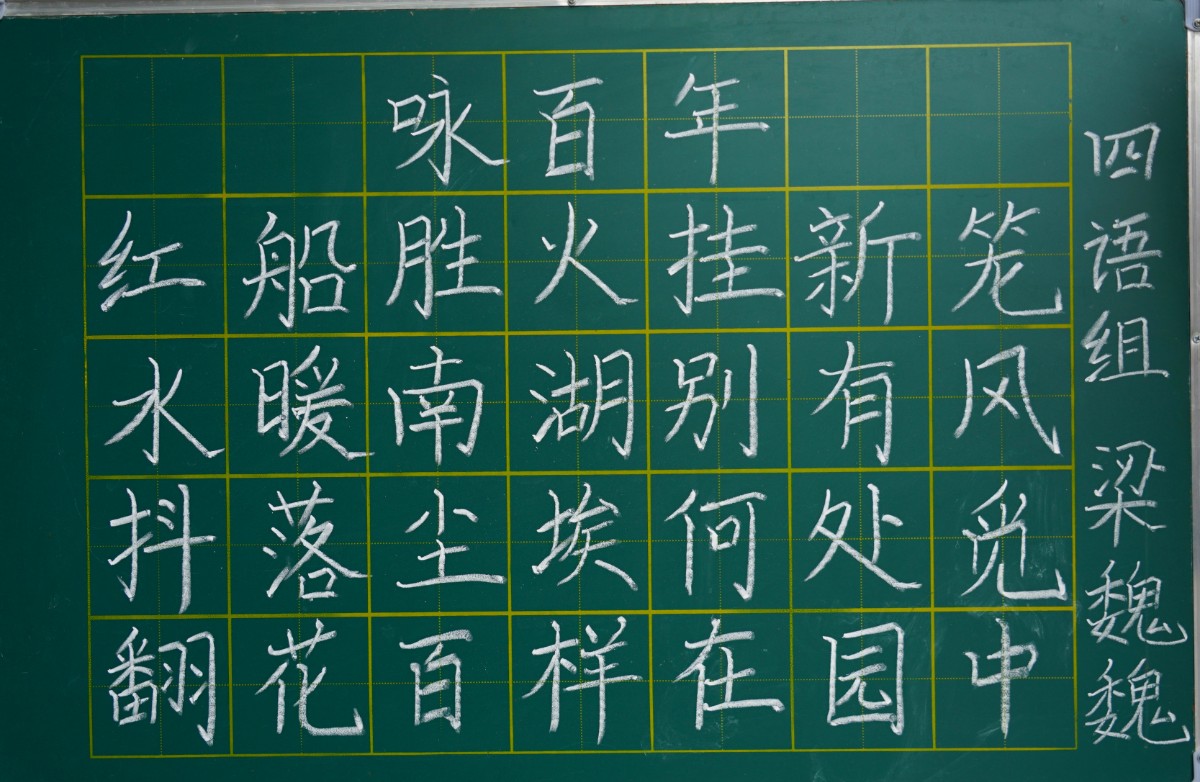 咏百年
红船胜火挂新笼
水暖南湖别有风
抖落尘埃何处觅
翻花百样在园中
四语组 梁魏魏